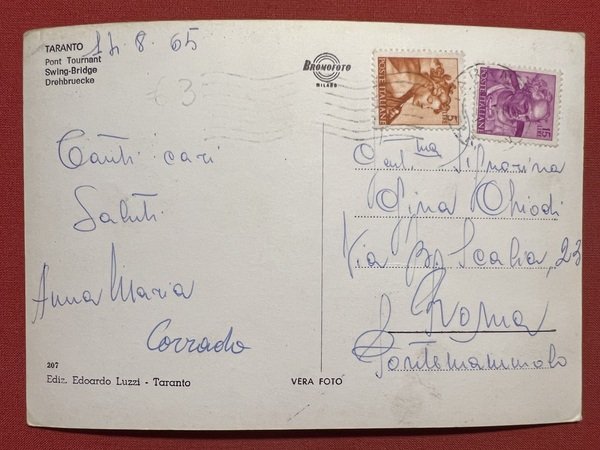 TARANTO
Pont Tournant
Swing-Bridge
Drehbruecke
14.8.65
63
BROMOFOTO
MILANO
5 LIRE
POSTE ITALIANE
15 LIRE
POSTE ITALIANE
Tanti cari
Saluti
Anna Maria
Corrado
Gent.ma Signorina
Gina Chiodi
Via B. Scalia, 23
Roma
Pontemammolo
207
Ediz. Edoardo Luzzi - Taranto
VERA FOTO